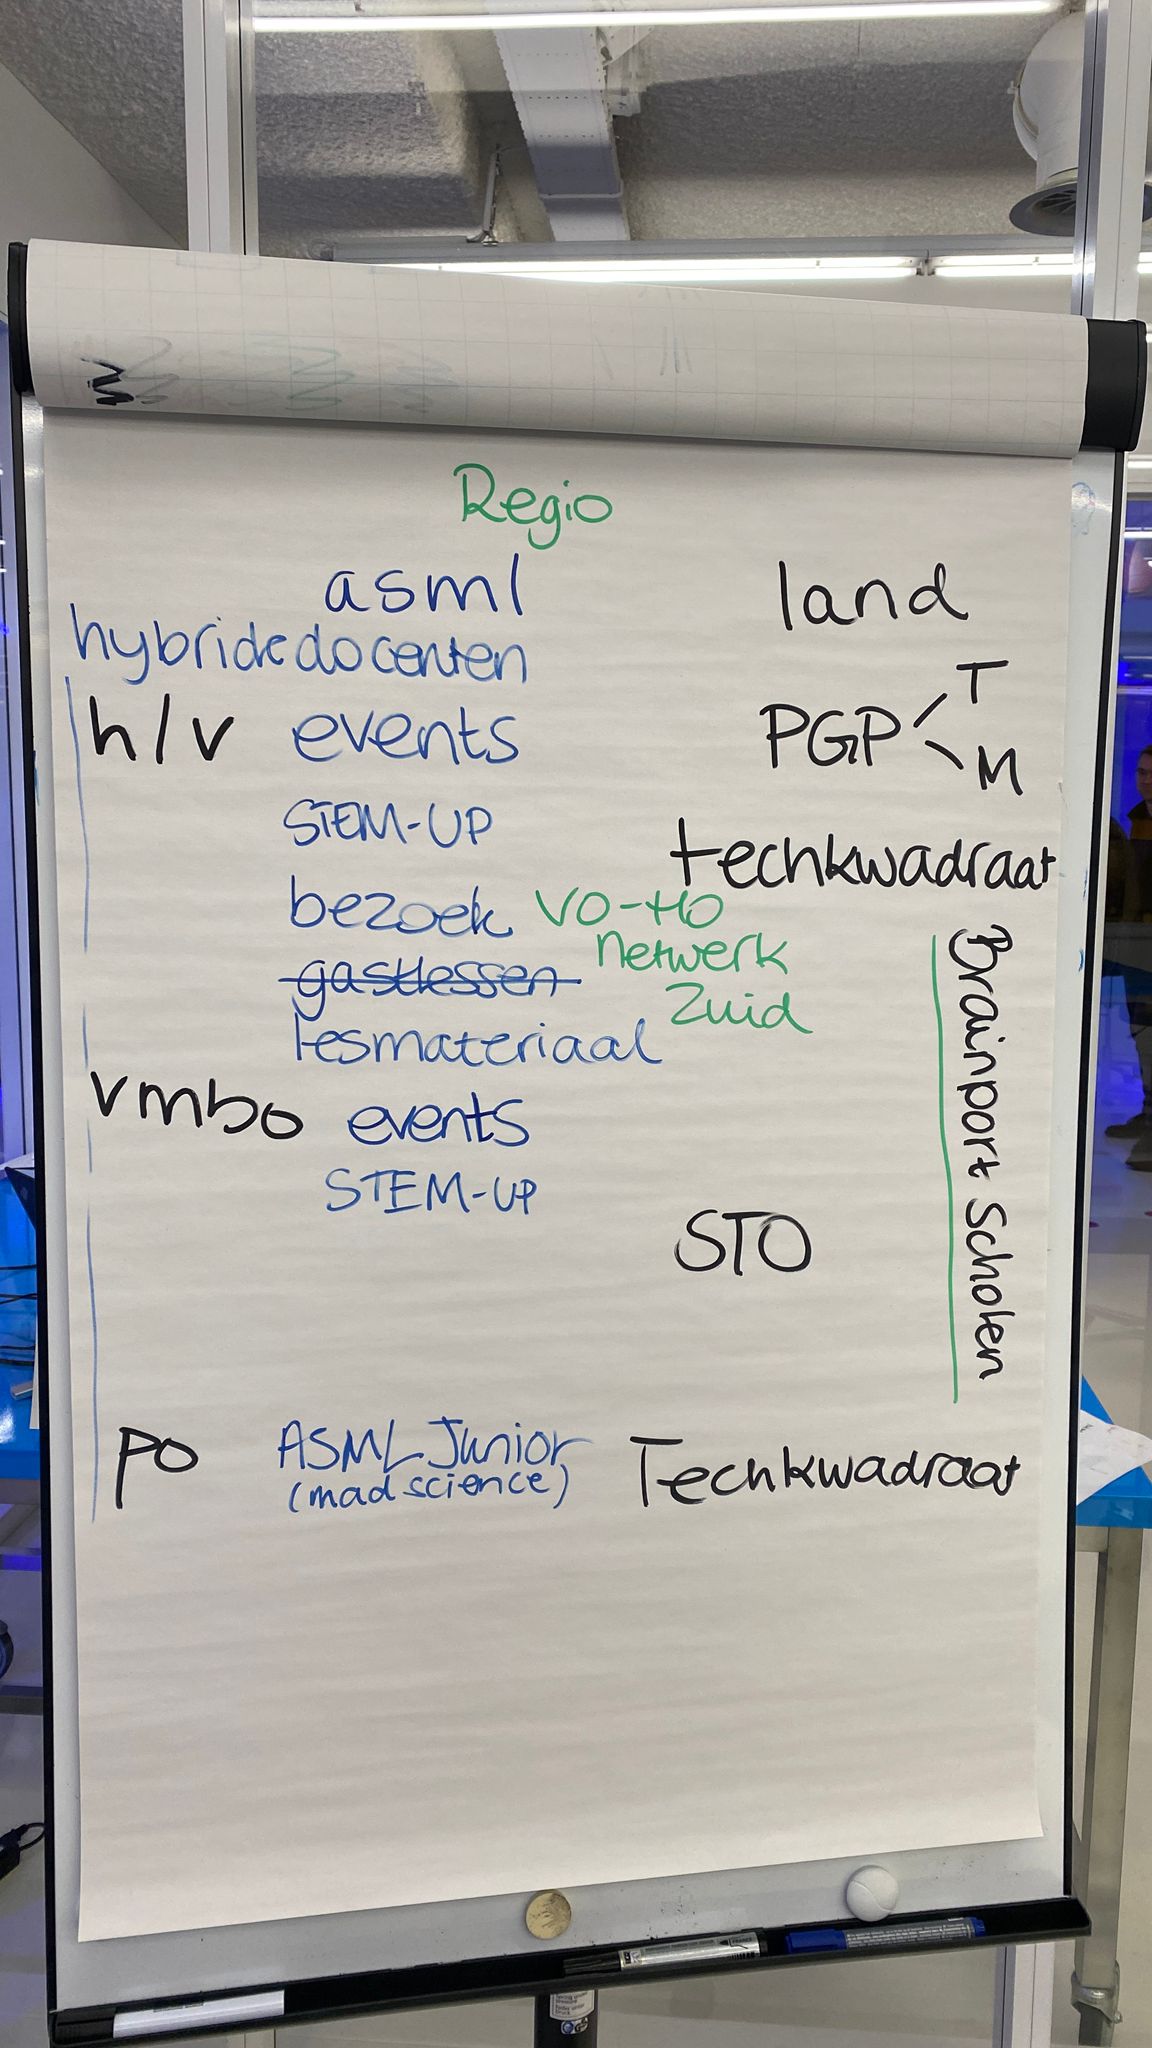 Regio
asml
land
hybridedocenten
h/v events
PGP T
M
STEM-UP
techkwadraat
bezoek
VO-HO
netwerk
Zuid
gastlessen
lesmateriaal
Brainport Scholen
vmbo events
STEM-UP
STO
po
ASML Junior
(mad science)
Techkwadraat